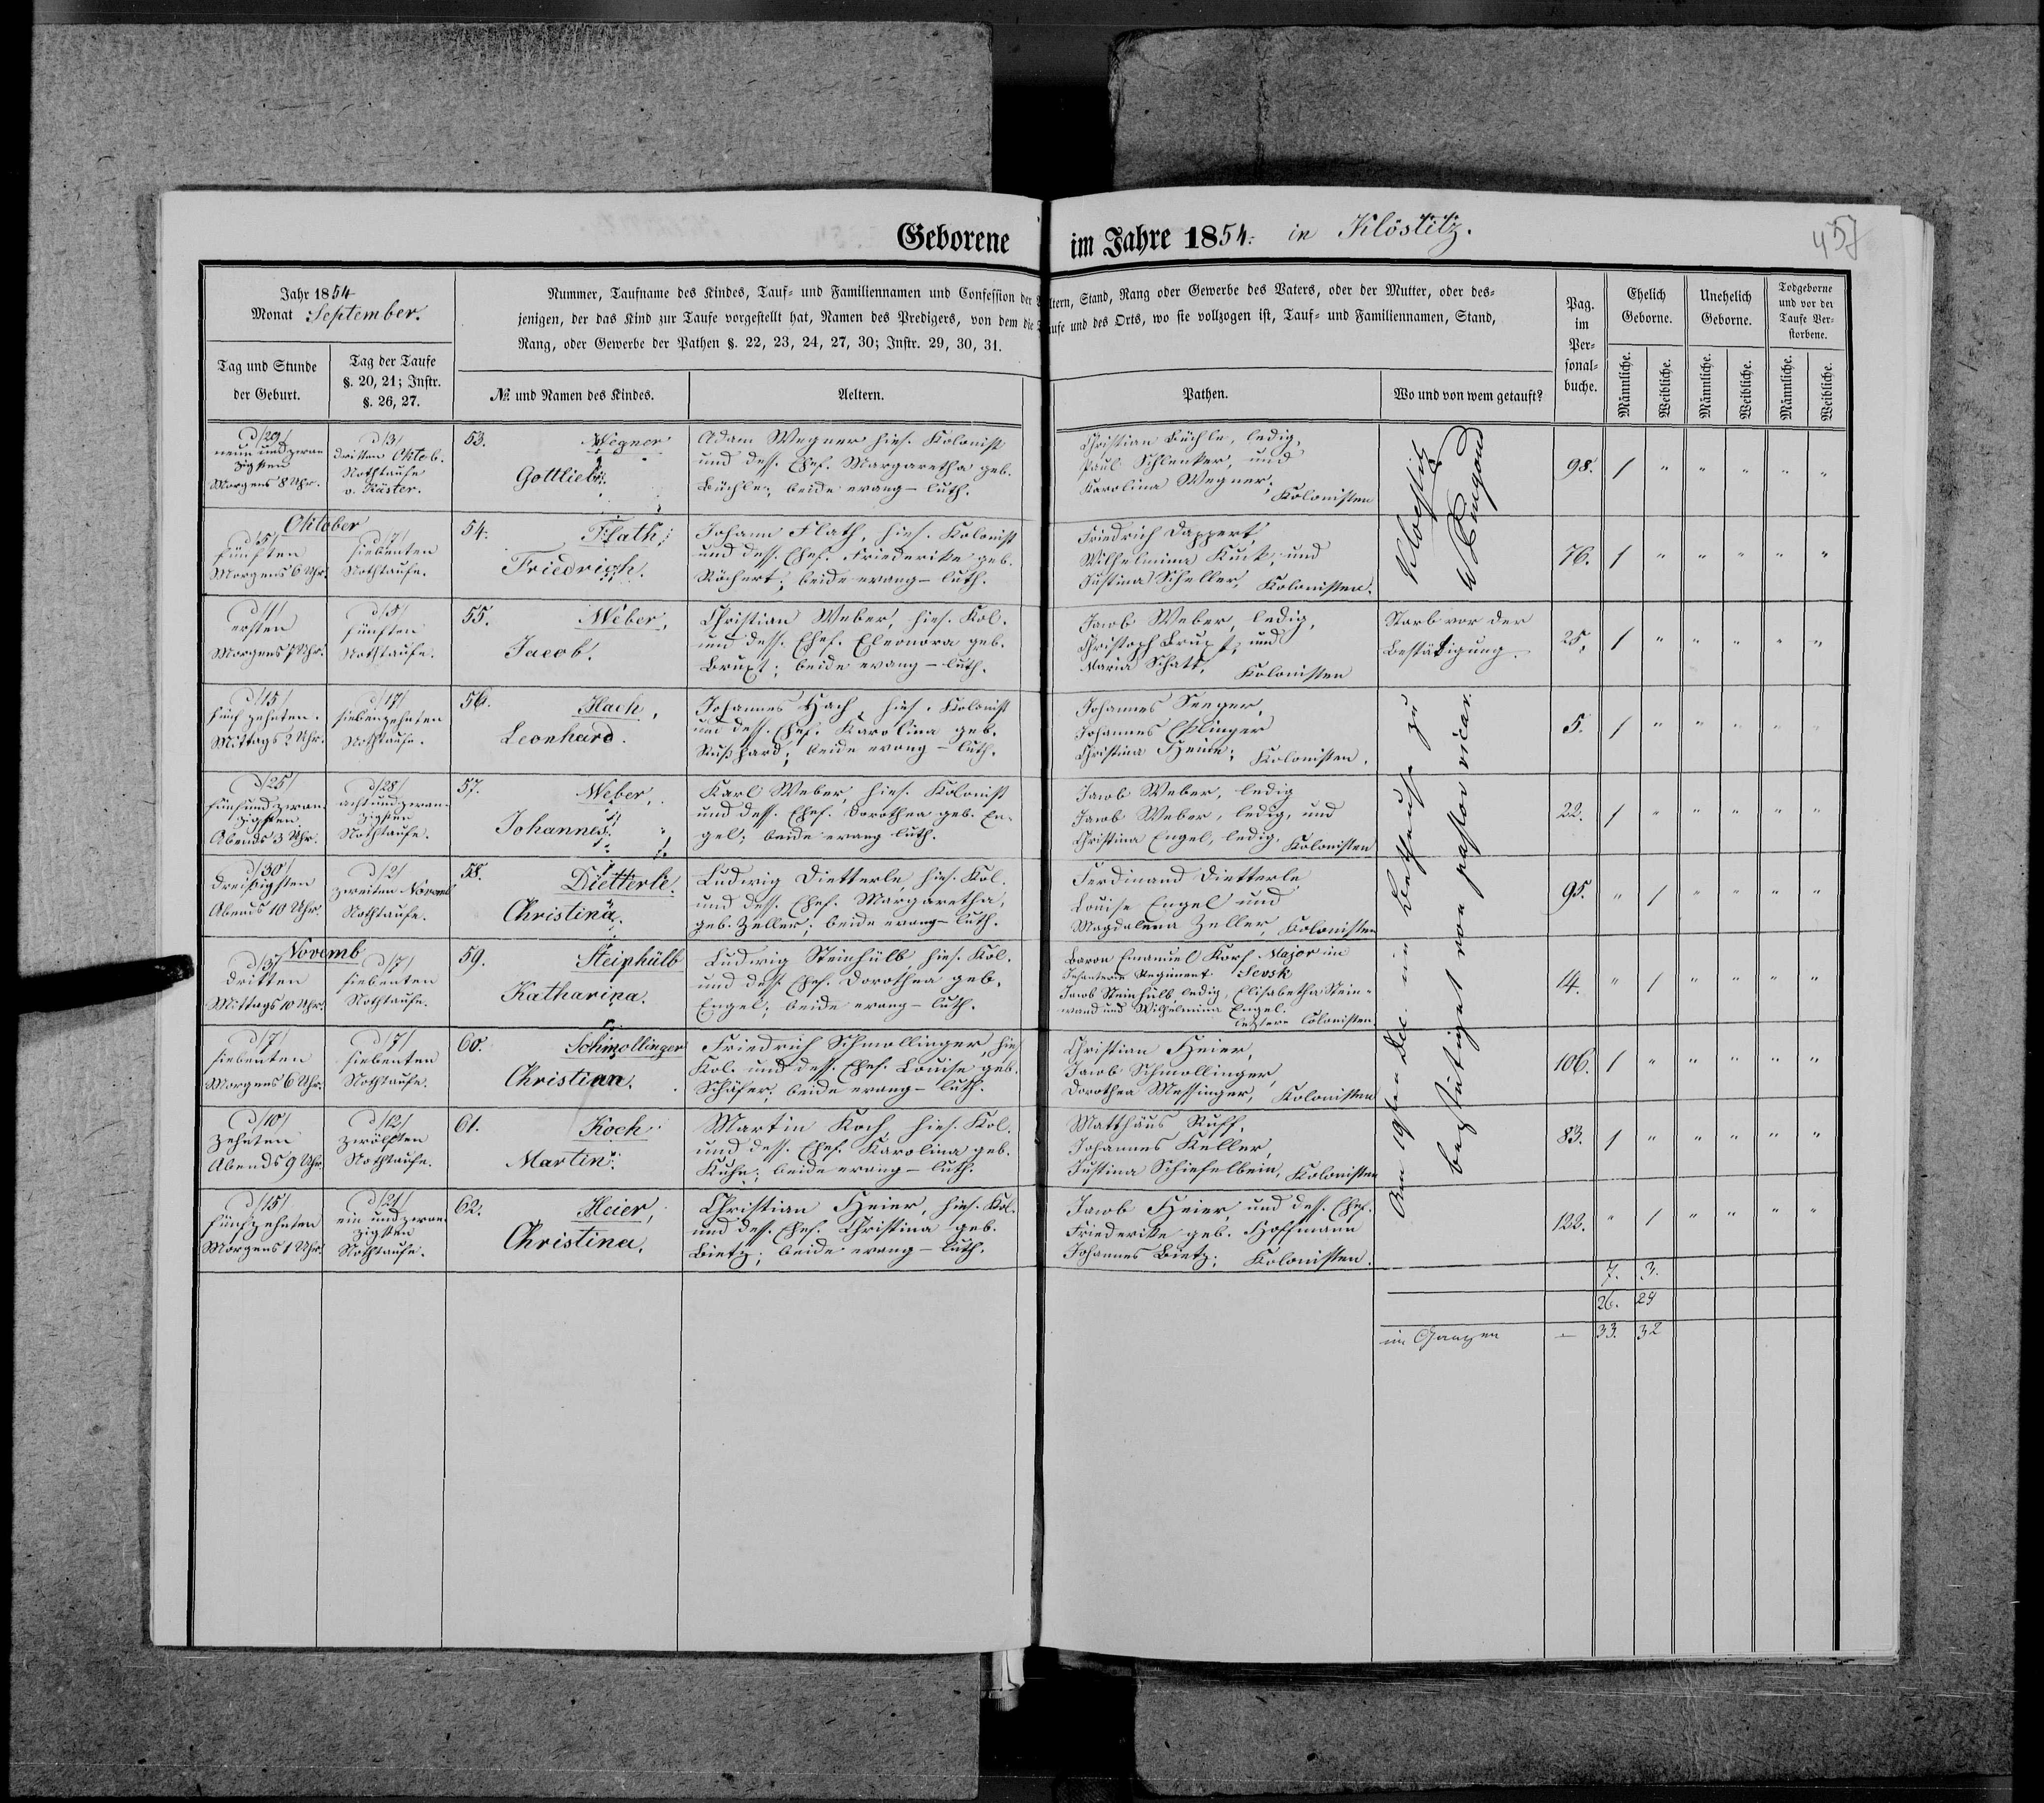 Geborene im Jahre 1854. in Klöstitz.
457
Jahr 1854
Monat September.
Nummer, Taufname des Kindes, Tauf- und Familiennamen und Confession der Aeltern, Stand, Rang oder Gewerbe des Vaters, oder der Mutter, oder des-
jenigen, der das Kind zur Taufe vorgestellt hat, Namen des Predigers, von dem die Taufe und des Orts, wo sie vollzogen ist, Tauf- und Familiennamen, Stand,
Rang, oder Gewerbe der Pathen §. 22, 23, 24, 27, 30; Instr. 29, 30, 31.
Tag und Stunde
der Geburt.
Tag der Taufe
§. 20, 21; Instr.
§. 26, 27.
№ und Namen des Kindes.
Aeltern.
Pathen.
Wo und von wem getauft?
Pag.
im
Per-
sonal-
buche.
Ehelich
Geborne.
Unehelich
Geborne.
Todgeborne
und vor der
Taufe Ver-
storbene.
Männliche.
Weibliche.
Männliche.
Weibliche.
Männliche.
Weibliche.
d/29/
neun und zwan
zigsten
Morgens 8 Uhr.
d/3/
dritten Oktob.
Nothtaufe
v. Küster.
53.
Wegner
Gottlieb.
Adam Wegner hies. Kolonist
und dess. Ehef. Margaretha geb.
Büchle; beide evang-luth.
Christian Büchle, ledig,
Paul Schlenker, und
Karolina Wegner,
Kolonisten
98. 1 " " " " "
Oktober
d/5/
fünften
Morgens 6 Uhr.
d/7/
siebenten
Nothtaufe.
54.
Flath,
Friedrich.
Johann Flath, hies. Kolonist
und dess. Ehef. Friederike geb.
Röchert; beide evang-luth.
Friedrich Dappert,
Wilhelmina Kuck, und
Justina Scheller, Kolonisten.
76. 1 " " " " "
d/1/
ersten
Morgens 7 Uhr.
d/5/
fünften
Nothtaufe.
55.
Weber,
Jacob.
Christian Weber, hies. Kol.
und dess. Ehef. Eleonora geb.
Bruxt; beide evang-luth.
Jacob Weber, ledig,
Christoph Bruxt, und
Maria Schatt, Kolonisten
Starb vor der
Bestätigung.
25. 1 " " " " "
d/15/
fünf zehnten.
Mittags 2 Uhr.
d/17/
siebenzehnten
Nothtaufe.
56.
Hach,
Leonhard.
Johannes Hach, hies. Kolonist
und dess. Ehef. Karolina geb.
Rußhard; beide evang-luth.
Johannes Seeger,
Johannes Eßlinger
Christina Heine; Kolonisten.
5. 1 " " " " "
d/25/
fünfundzwan
zigsten
Abends 3 Uhr.
d/28/
achtundzwan
zigsten
Nothtaufe.
57.
Weber,
Johannes.
Karl Weber, hies. Kolonist
und dess. Ehef. Dorothea geb. En-
gel; beide evang luth.
Jacob Weber, ledig
Jacob Weber, ledig, und
Christina Engel, ledig, Kolonisten
22. 1 " " " " "
d/30/
dreißigsten
Abends 10 Uhr.
d/2/
zweiten Novemb
Nothtaufe.
58.
Dietterle.
Christina.
Ludwig Dietterle, hies. Kol.
und dess. Ehef. Margaretha,
geb. Zeller; beide evang-luth.
Ferdinand Dietterle
Louise Engel und
Magdalena Zeller, Kolonisten
95. " 1 " " " "
Novemb
d/3/
dritten
Mittags 10 Uhr.
d/7/
siebenten
Nothtaufe.
59.
Steinhülb
Katharina.
Ludwig Steinhülb hies. Kol.
und dess. Ehef. Dorothea geb.
Engel; beide evang-luth.
Baron Emanuel Korf Major im
Infanterie Regiment Sevsk
Jacob Steinhülb, ledig, Elisabetha Stein-
wand und Wilhelmina Engel.
letztere Colonisten
14. " 1 " " " "
d/7/
siebenten
Morgens 6 Uhr.
d/7/
siebenten
Nothtaufe.
60.
Schmollinger
Christian.
Friedrich Schmollinger, hies
Kol. und dess. Ehef. Louise geb.
Schäfer; beide evang-luth.
Christian Heier,
Jacob Schmollinger,
Dorothea Messinger, Kolonisten
106. 1 " " " " "
d/10/
zehnten
Abends 9 Uhr
d/12/
zwölften
Nothtaufe.
61.
Koch
Martin.
Martin Koch, hies. Kol.
und dess. Ehef. Karolina geb.
Kuhn; beide evang-luth.
Matthäus Ruff,
Johannes Keller,
Justina Schiefelbein, Kolonisten
83. 1 " " " " "
d/15/
fünfzehnten
Morgens 1 Uhr.
d/21/
ein und zwan
zigsten
Nothtaufe.
62.
Heier,
Christina.
Christian Heier, hies. Kol.
und dess. Ehef. Christina geb.
Bietz; beide evang-luth.
Jacob Heier und dess. Ehef.
Friederike geb. Hoffmann
Johannes Bietz; Kolonisten.
122. " 1 " " " "
Am 19ten Dec. im Bethause zu Kloestitz
bestätiget von pastor vicar.
7. 3.
26. 29
im Ganzen — 33. 32